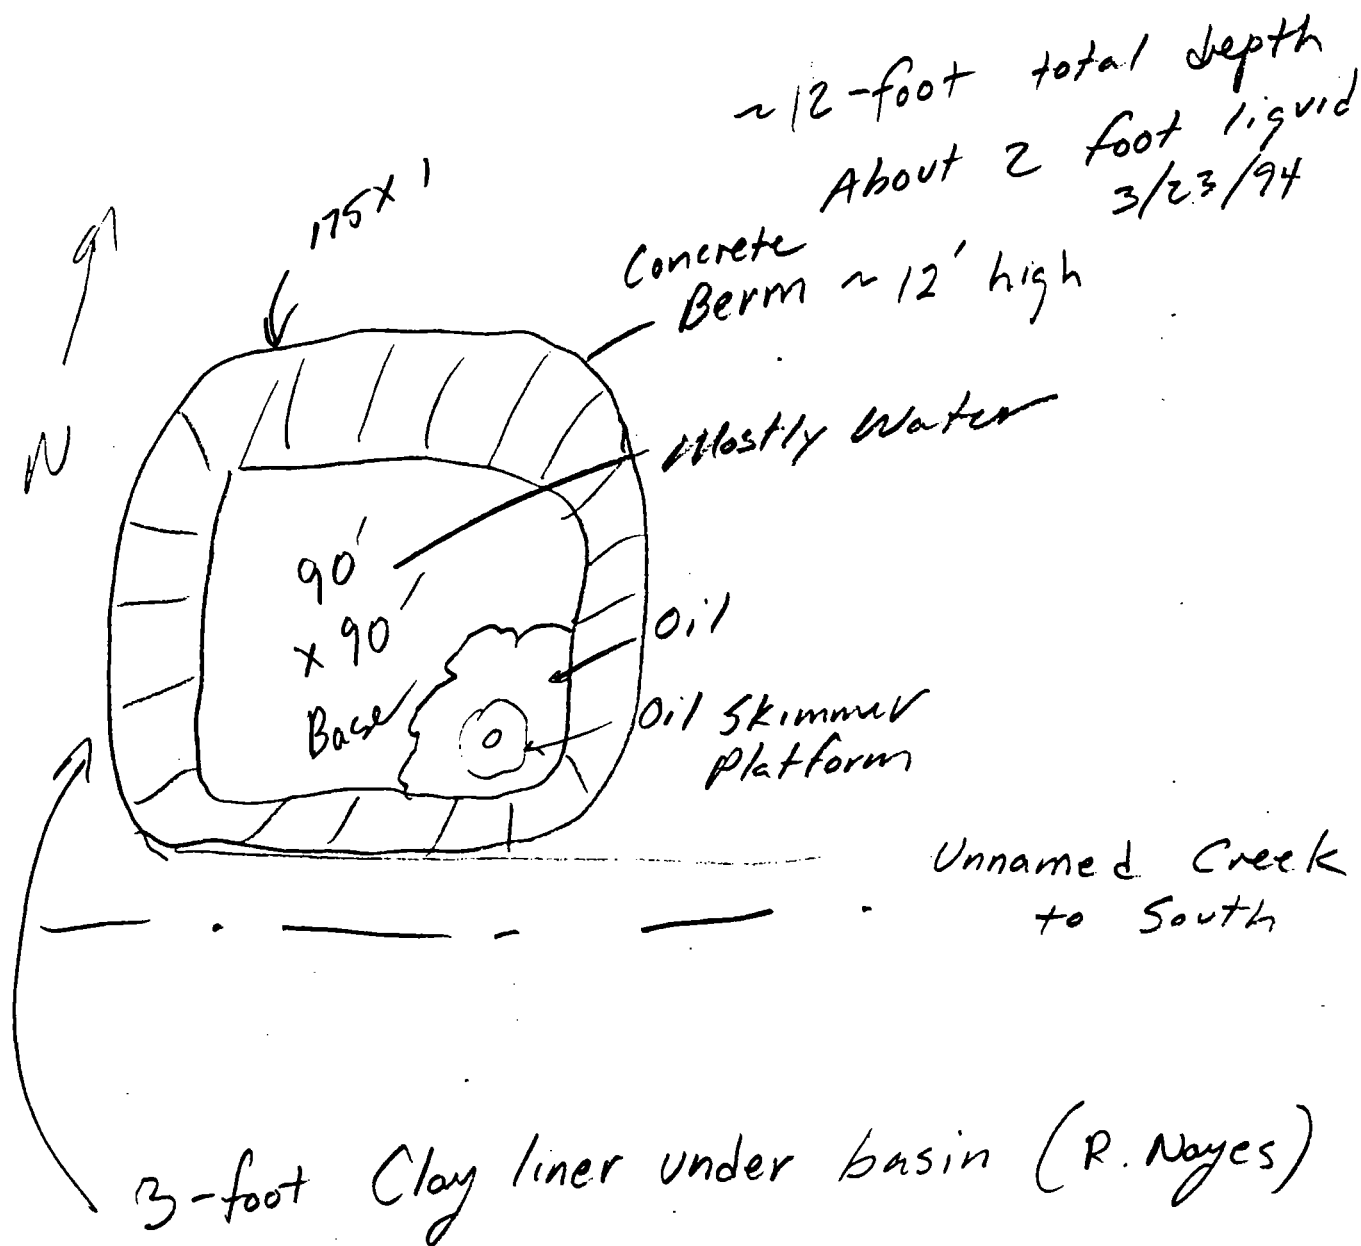 ~12-foot total depth
About 2 foot liquid
3/23/94
175x'
Concrete
Berm ~ 12' high
N
Mostly Water
90'
x 90'
Base
Oil
Oil Skimmer
Platform
Unnamed Creek
to South
3-foot Clay liner under basin (R. Noyes)